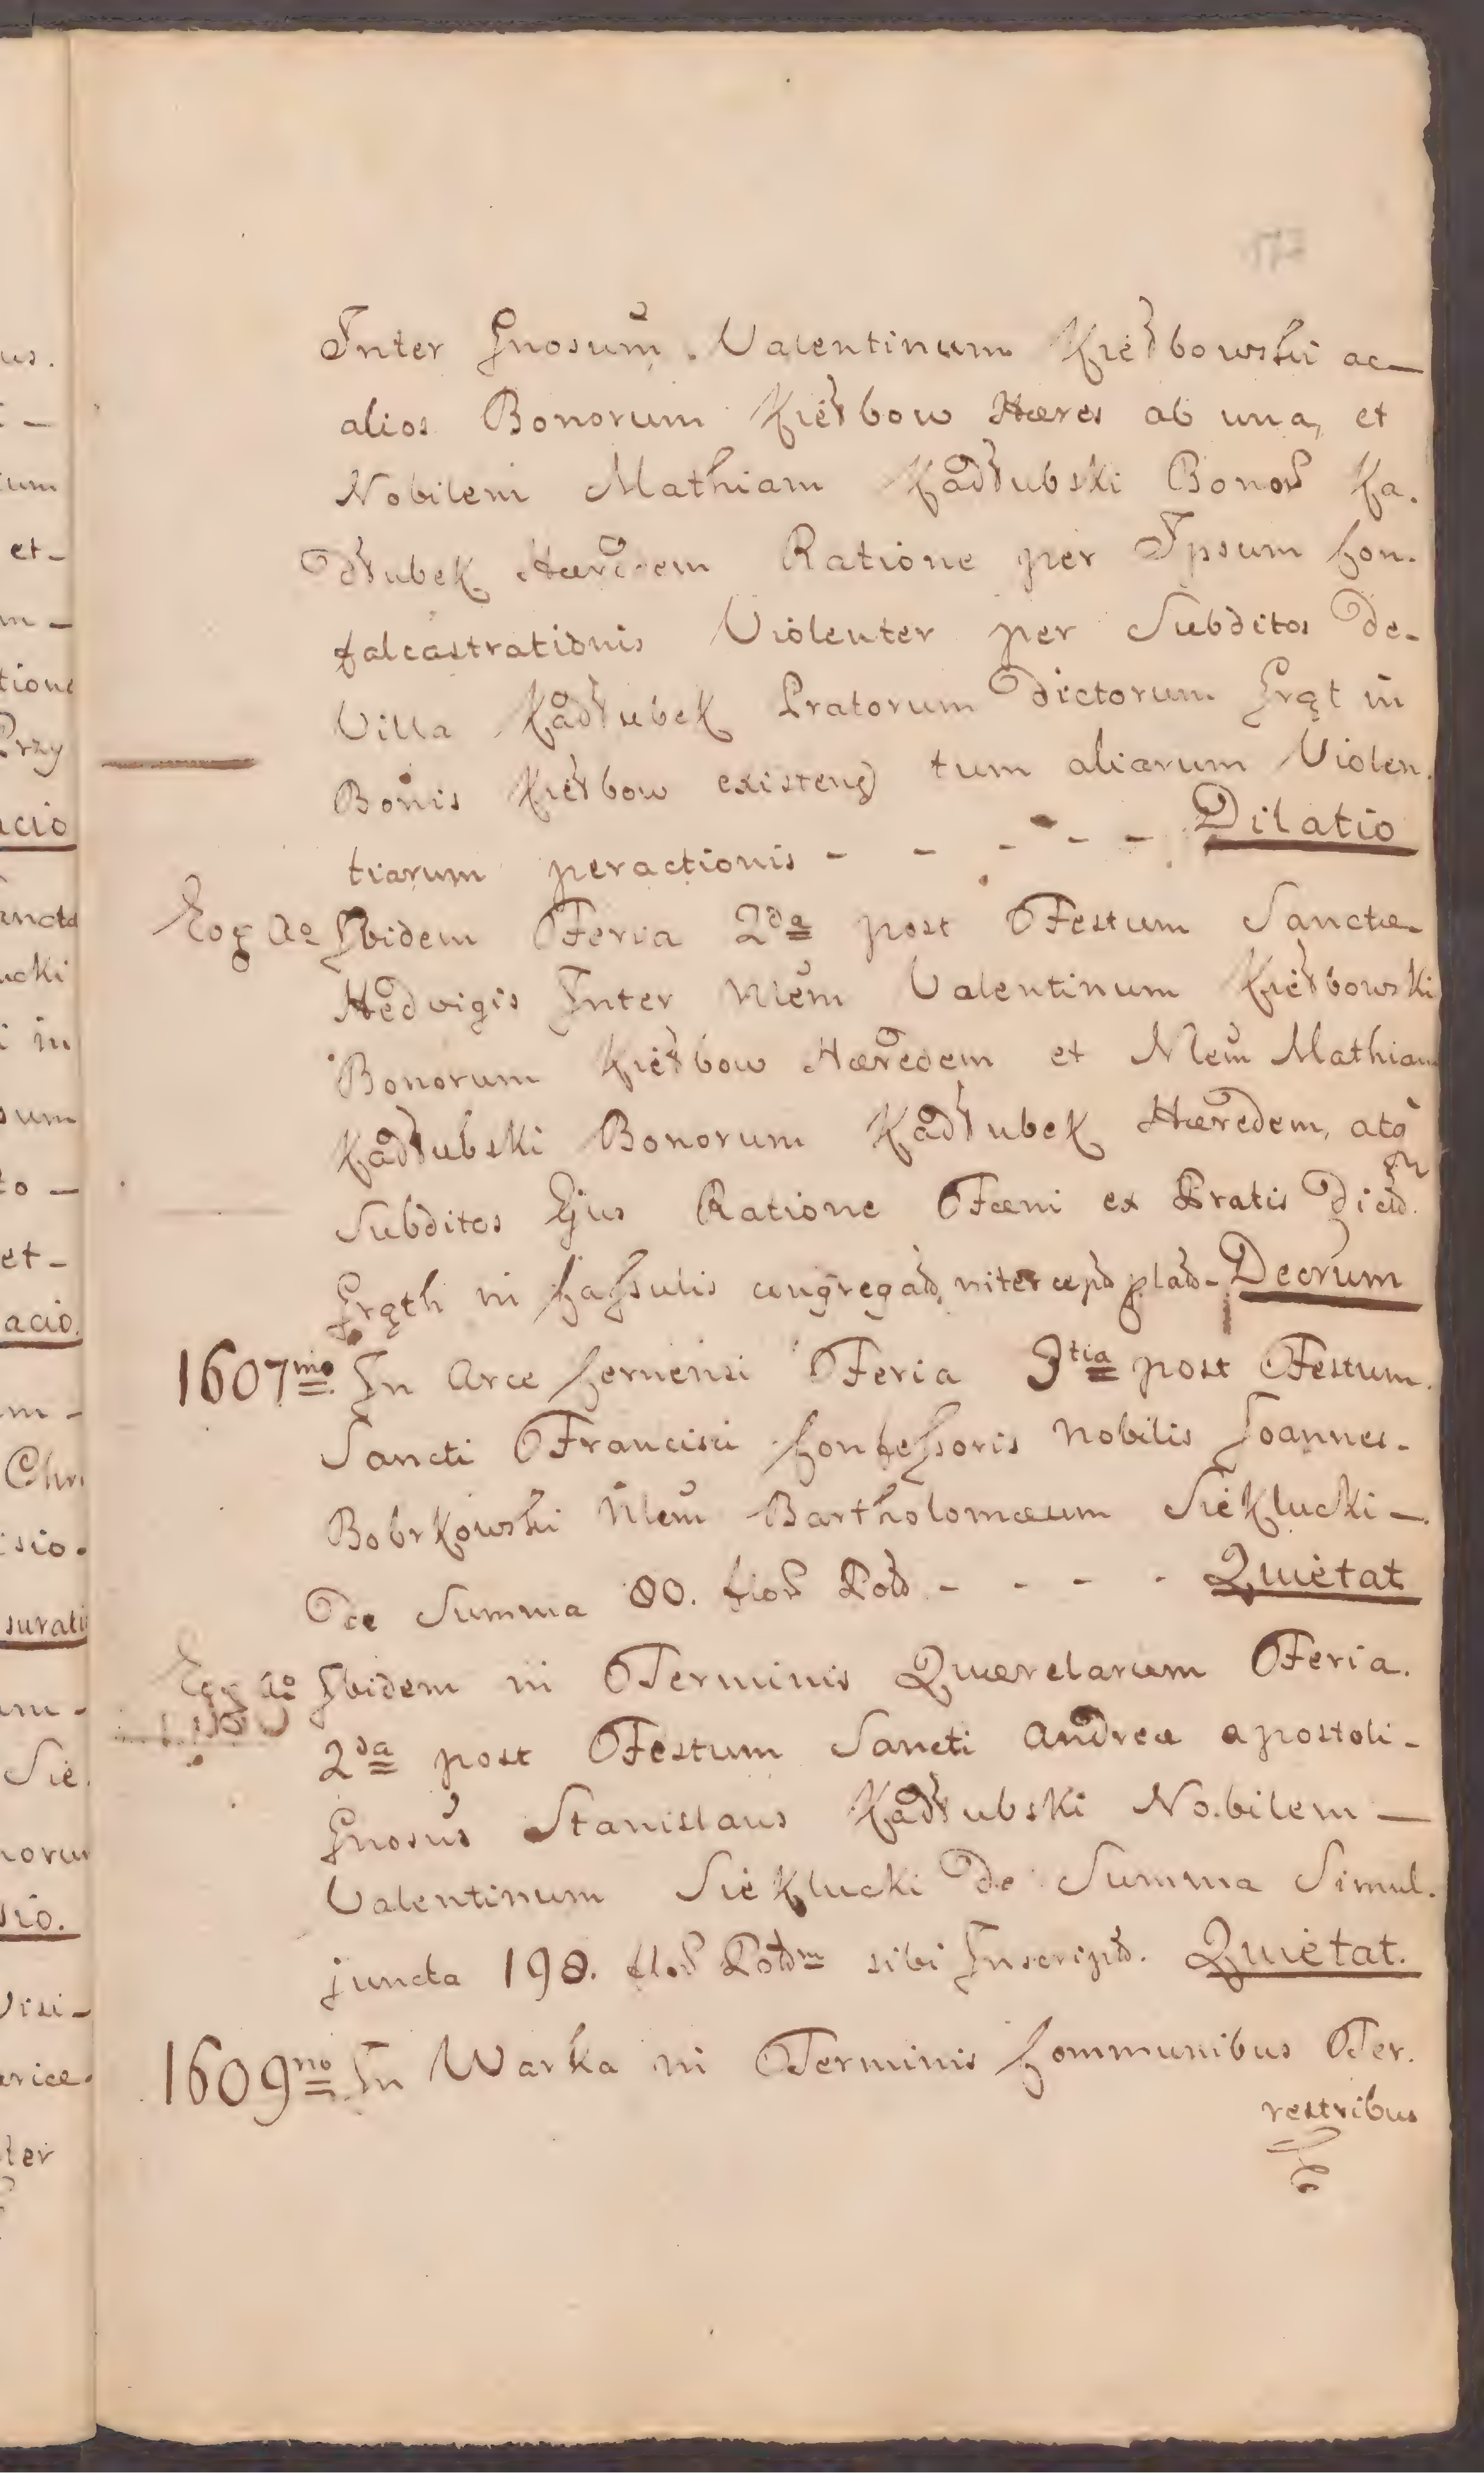 Inter Gnosum Valentinum Kiełbowski ac
alios Bonorum Kiełbow Hæres ab una, et
Nobilem Mathiam Kadłubski Bonor Ka.
dłubek Hæredem Ratione per Ipsum Con.
falcastrationis Violenter per Subditos de
Villa Kadłubek Pratorum dictorum Grąt in
Bonis Kiełbow existen tum aliarum Violen.
tiarum peractionis - - - - - Dilatio
Eog Ao Ibidem Feria 2da post Festum Sanctæ
Hedvigis Inter Nlem Valentinum Kiełbowski
Bonorum Kiełbow Hæredem et Nlem Mathiam
Kadłubski Bonorum Kadłubek Hæredem, atq
Subditos Ejus Ratione Fæni ex Pratis Dictor
Grąth in Cassulis congregat, Decrum
1607mo In Arce Cernensi Feria 3tia post Festum
Sancti Francisci Confessoris Nobilis Joannes
Bobrkowski Nlem Bartholomæum Siekłucki -
De Summa 80. flor Pol - - - - Quietat
Eog Ao Ibidem in Terminis Quærelarum Feria
2da post Festum Sancti Andreæ Apostoli -
Gnosus Stanislaus Kadłubski Nobilem -
Valentinum Siekłucki De Summa Simul.
juncta 198. flor sibi Inscript. Quietat.
1609no In Warka in Terminis Communibus Ter.
restribus